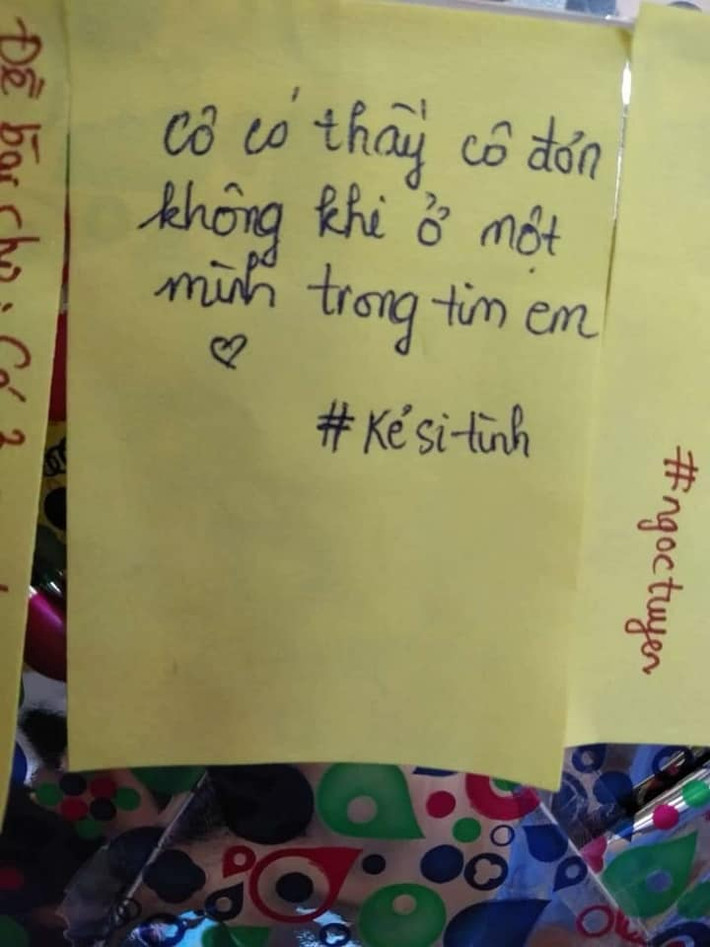 Cô có thấy cô đơn
không khi ở một
mình trong tim em
♡
#Kẻ si tình
#ngoctuyen
Để bạn chọn: Có